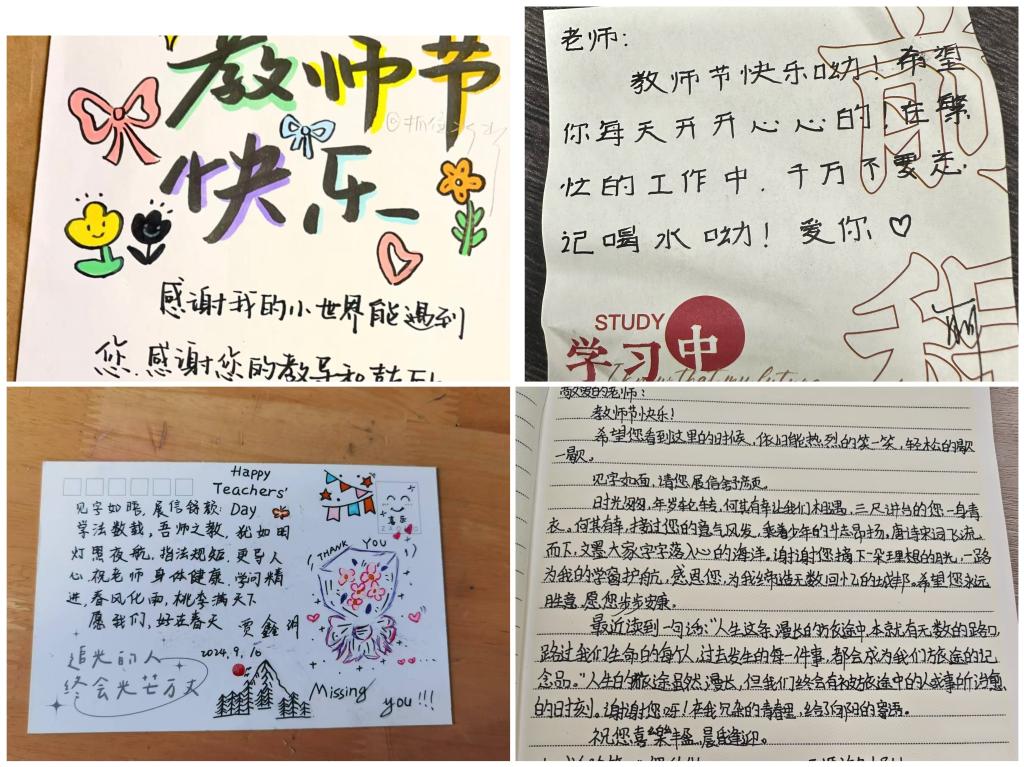 教师节
快乐
感谢我的小世界能遇到
您.感谢您的教导和鼓
老师:
教师节快乐呦!希望
你每天开开心心的,在繁
忙的工作中.千万不要忘
记喝水呦!爱你♡
STUDY
学习中
Happy
Teachers'
Day
见字如晤,展信
学法数载,吾师之教,犹如明
灯照夜航,指法规矩.更导人
心祝老师身体健康,学问精
进,春风化雨,桃李满天下
愿我们,好在春天
贾鑫
2024.9.10
追光的人
终会光芒万丈
THANK YOU
Missing
you!!!
敬爱的老师:
教师节快乐!
希望您看到这里的时候,依旧能热烈的笑一笑,轻松的歇
一歇。
见字如面,请您展信舒颜。
时光匆匆,年岁轮转,何其有幸让我们相遇,三尺讲台的您一身青
衣。何其有幸,接过您的意气风发,乘着少年的斗志昂扬,唐诗宋词飞流
而下,文墨大家字字落入心的海洋。谢谢您摘下一朵理想的阳光,一路
为我的学窗护航,感恩您,为我缔造无数回忆的城邦。希望您永远
胜意,愿您步步安康。
最近读到一句话:“人生这条漫长的旅途中,本就有无数的路口,
路过我们生命的每个人,过去发生的每一件事,都会成为我们旅途的纪
念品。”人生的旅途虽然漫长,但我们终会有被旅途中的人或事所治愈
的日时刻。谢谢您呀!在我冗杂的青春里,给了向阳的寓语。
祝您喜樂丰盈,晨昏逢迎。